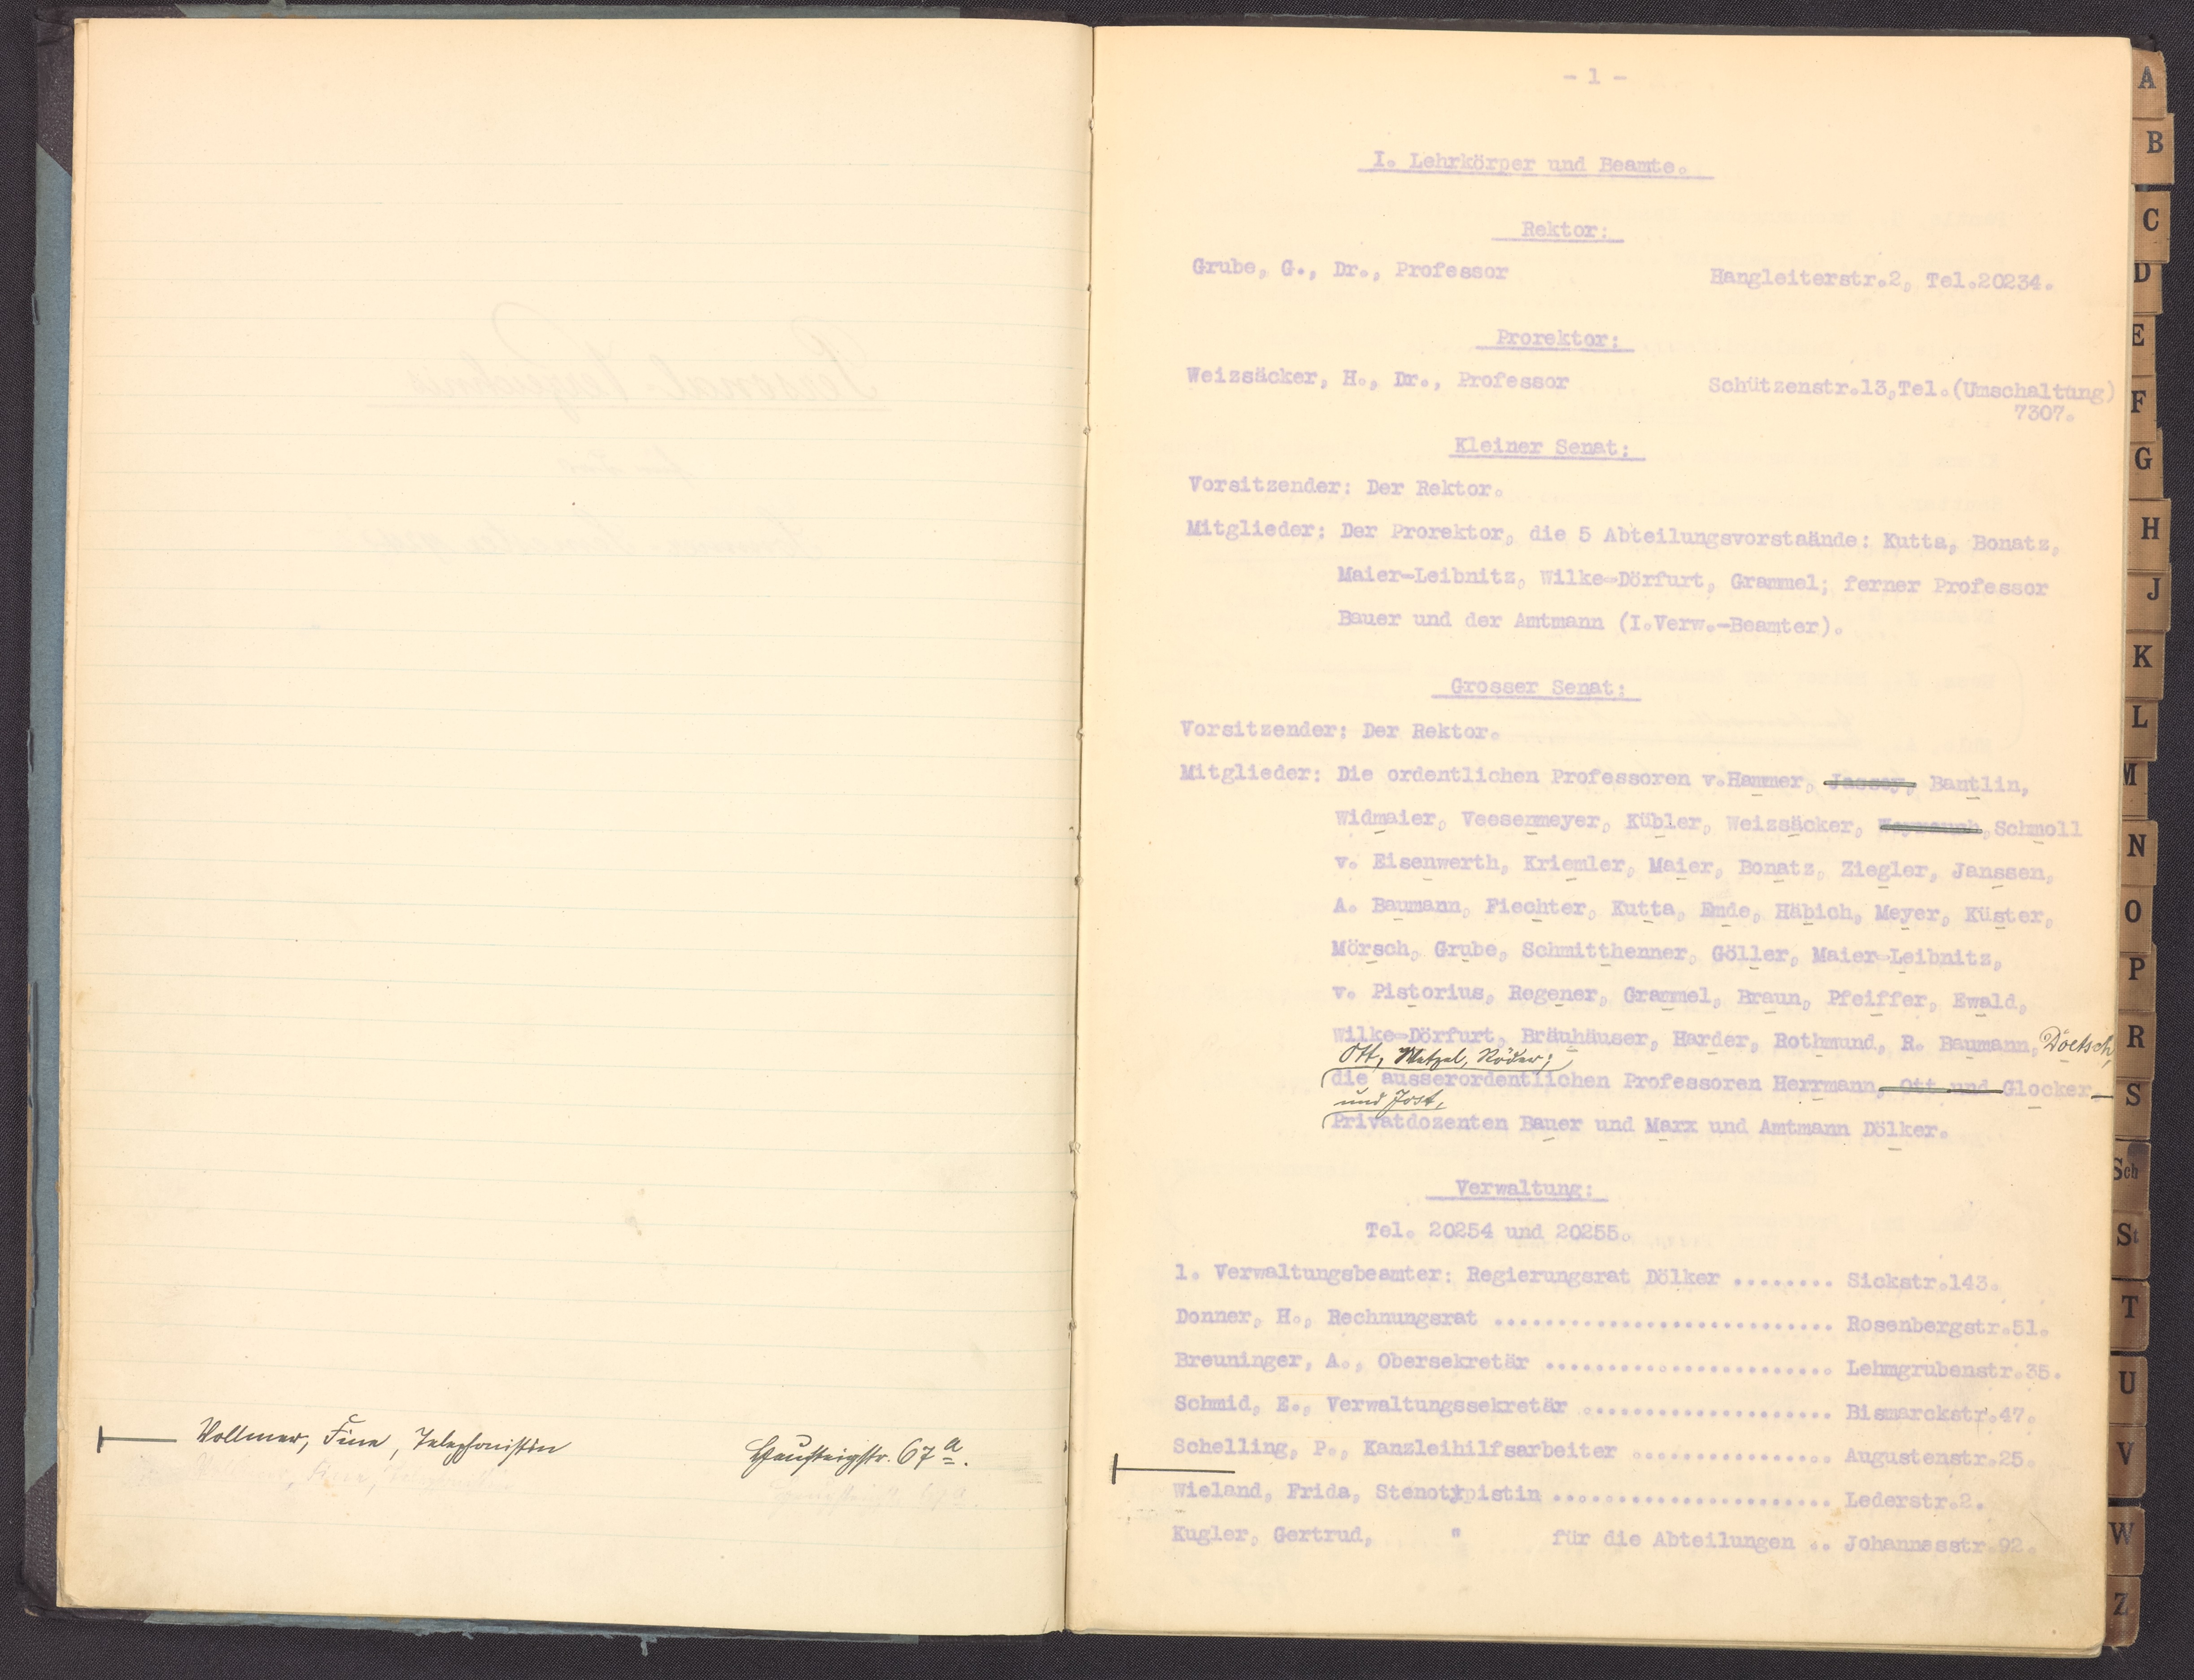 Vollmer, Fine, Telephonistin Hausteigstr. 67a.
- 1 -
I. Lehrkörper und Beamte.
Rektor:
Grube, G., Dr., Professor Hangleiterstr.2, Tel.20234.
Prorektor:
Weizsäcker, H., Dr., Professor Schützenstr.13,Tel.(Umschaltung)
7307.
Kleiner Senat:
Vorsitzender: Der Rektor.
Mitglieder: Der Prorektor, die 5 Abteilungsvorstaände: Kutta, Bonatz,
Maier-Leibnitz, Wilke-Dörfurt, Grammel; ferner Professor
Bauer und der Amtmann (I.Verw.-Beamter).
Grosser Senat:
Vorsitzender: Der Rektor.
Mitglieder: Die ordentlichen Professoren v.Hammer, Jassoy, Bantlin,
Widmaier, Veesenmeyer, Kübler, Weizsäcker, Weyrauch,Schmoll
v. Eisenwerth, Kriemler, Maier, Bonatz, Ziegler, Janssen,
A. Baumann, Fiechter, Kutta, Emde, Häbich, Meyer, Küster,
Mörsch, Grube, Schmitthenner, Göller, Maier-Leibnitz,
v. Pistorius, Regener, Grammel, Braun, Pfeiffer, Ewald,
Wilke-Dörfurt, Bräuhäuser, Harder, Rothmund, R. Baumann, Doetsch,
Ott, Wetzel, Röder;
die ausserordentlichen Professoren Herrmann, Ott und Glocker
und Jost,
Privatdozenten Bauer und Marx und Amtmann Dölker.
Verwaltung:
Tel. 20254 und 20255.
1. Verwaltungsbeamter: Regierungsrat Dölker ........ Sickstr.143.
Donner, H., Rechnungsrat ........................... Rosenbergstr.51.
Breuninger, A., Obersekretär ....................... Lehmgrubenstr.35.
Schmid, E., Verwaltungssekretär .................... Bismarckstr.47.
Schelling, P., Kanzleihilfsarbeiter ................ Augustenstr.25.
Wieland, Frida, Stenotypistin ...................... Lederstr.2.
Kugler, Gertrud, " für die Abteilungen .. Johannesstr.92.
A
B
C
D
E
F
G
H
J
K
L
M
N
O
P
R
S
Sch
St
T
U
V
W
Z